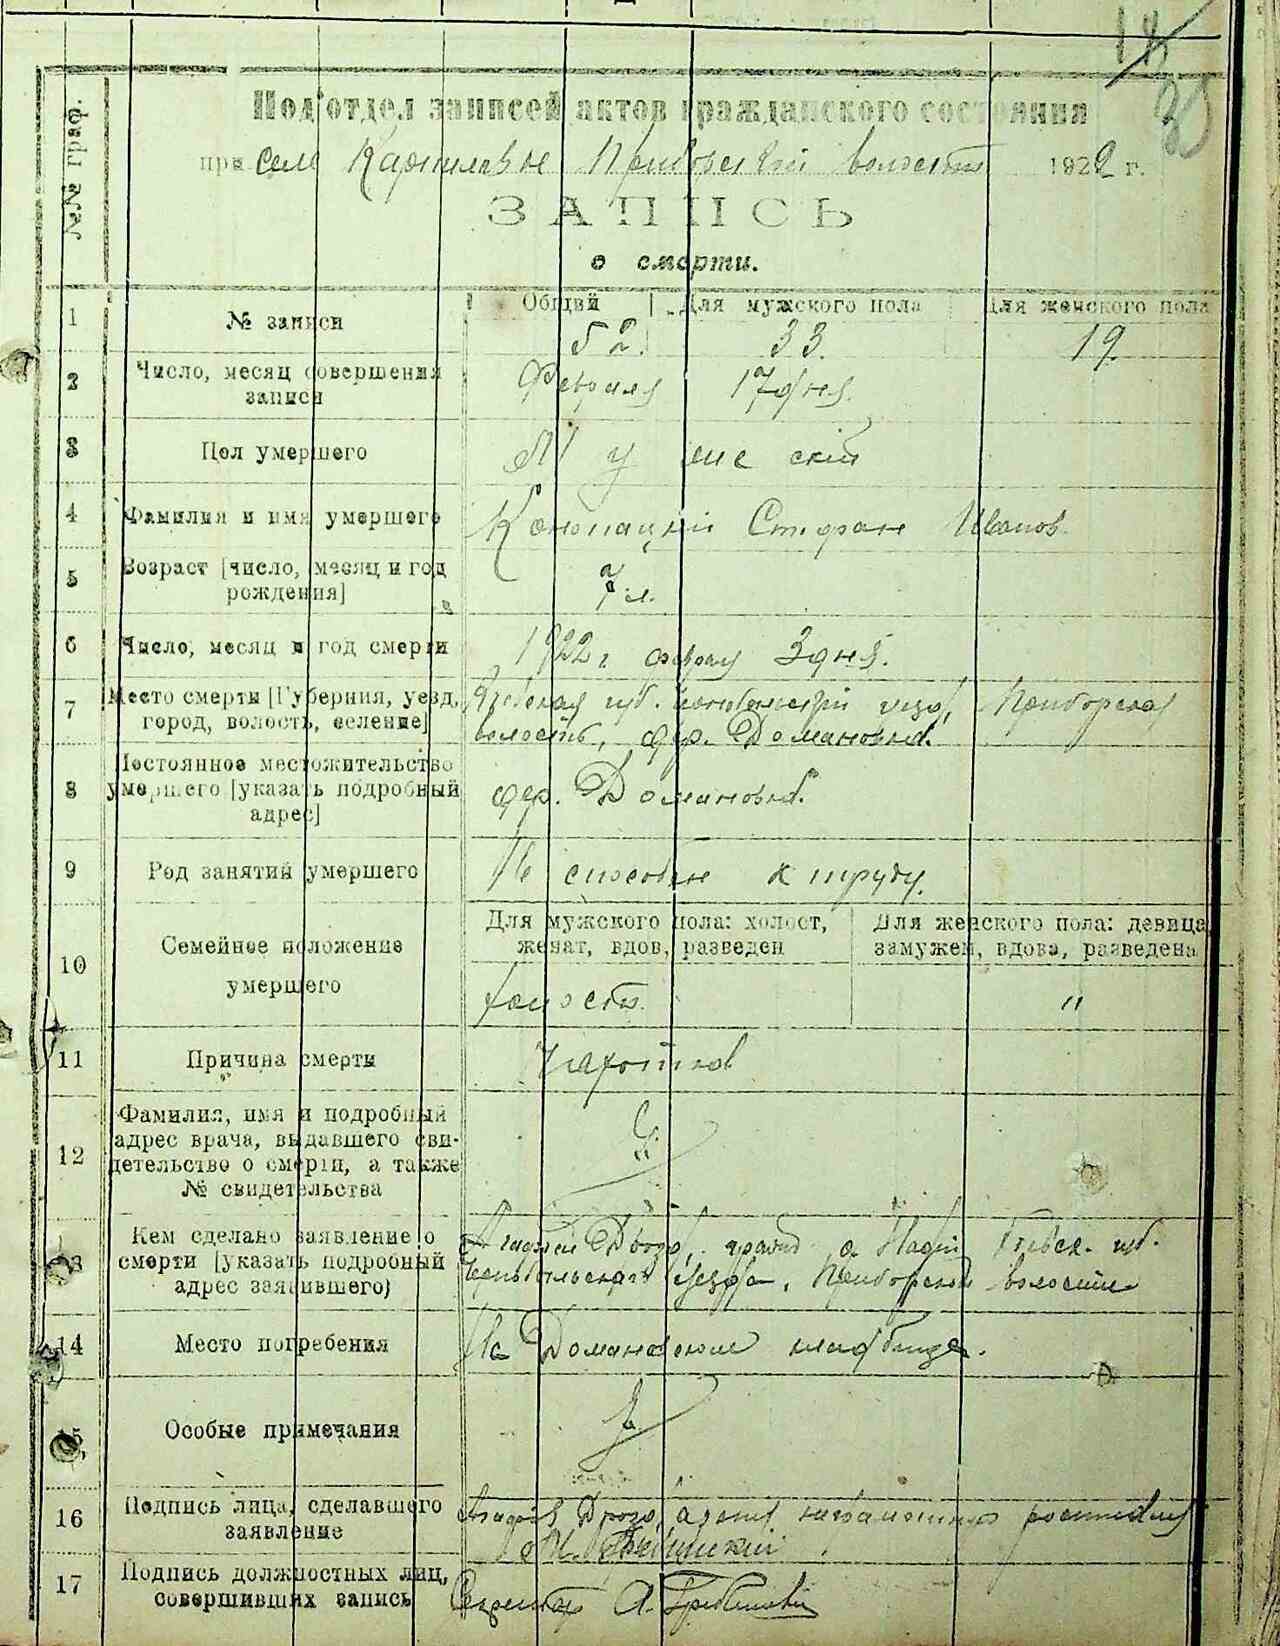 №№ граф.
Подотдел записей актов гражданского состояния
при селе Карпиловке Приборской волости 1922 г.
ЗАПИСЬ
о смерти.
1 № записи Общий Для мужского пола Для женского пола
52. 33. 19.
2 Число, месяц совершения записи
Февраля 17 дня.
3 Пол умершего
Мужеский
4 Фамилия и имя умершего
Конопацкий Стефан Иванов
5 Возраст [число, месяц и год рождения]
7 л.
6 Число, месяц и год смерти
1922 г. февраля 3 дня.
7 Место смерти [Губерния, уезд, город, волость, селение]
губ. уезд, Приборская
волость, дер. Домановка.
8 Постоянное местожительство умершего [указать подробный адрес]
дер. Домановка.
9 Род занятий умершего
Не способен к труду.
10 Семейное положение умершего
Для мужского пола: холост, женат, вдов, разведен
Для женского пола: девица, замужем, вдова, разведена
холост. "
11 Причина смерти
12 Фамилия, имя и подробный адрес врача, выдавшего свидетельство о смерти, а также № свидетельства
13 Кем сделано заявление о смерти [указать подробный адрес заявившего]
губ.
Чернобыльского уезда, Приборской волости
14 Место погребения
На Домановском кладбище.
15 Особые примечания
16 Подпись лица, сделавшего заявление
17 Подпись должностных лиц, совершивших запись
Секретарь А.